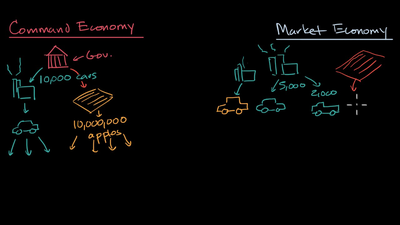 Command Economy
Gov.
10,000 cars
10,000,000
apples
Market Economy
5,000
2,000